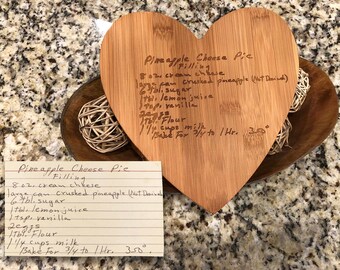 Pineapple Cheese Pie
Filling
8 oz. cream cheese
large can crushed pineapple (Not Drained)
6 Tbl. sugar
1 Tbl. lemon juice
1 tsp. vanilla
2 eggs
1 Tbl. Flour
1 1/4 cups milk
Bake For 3/4 to 1 Hr. 350°
Pineapple Cheese Pie
Filling
8 oz. cream cheese
large can crushed pineapple (Not Drained)
6 Tbl. sugar
1 Tbl. lemon juice
1 tsp. vanilla
2 eggs
1 Tbl. Flour
1 1/4 cups milk
Bake For 3/4 to 1 Hr. 350°